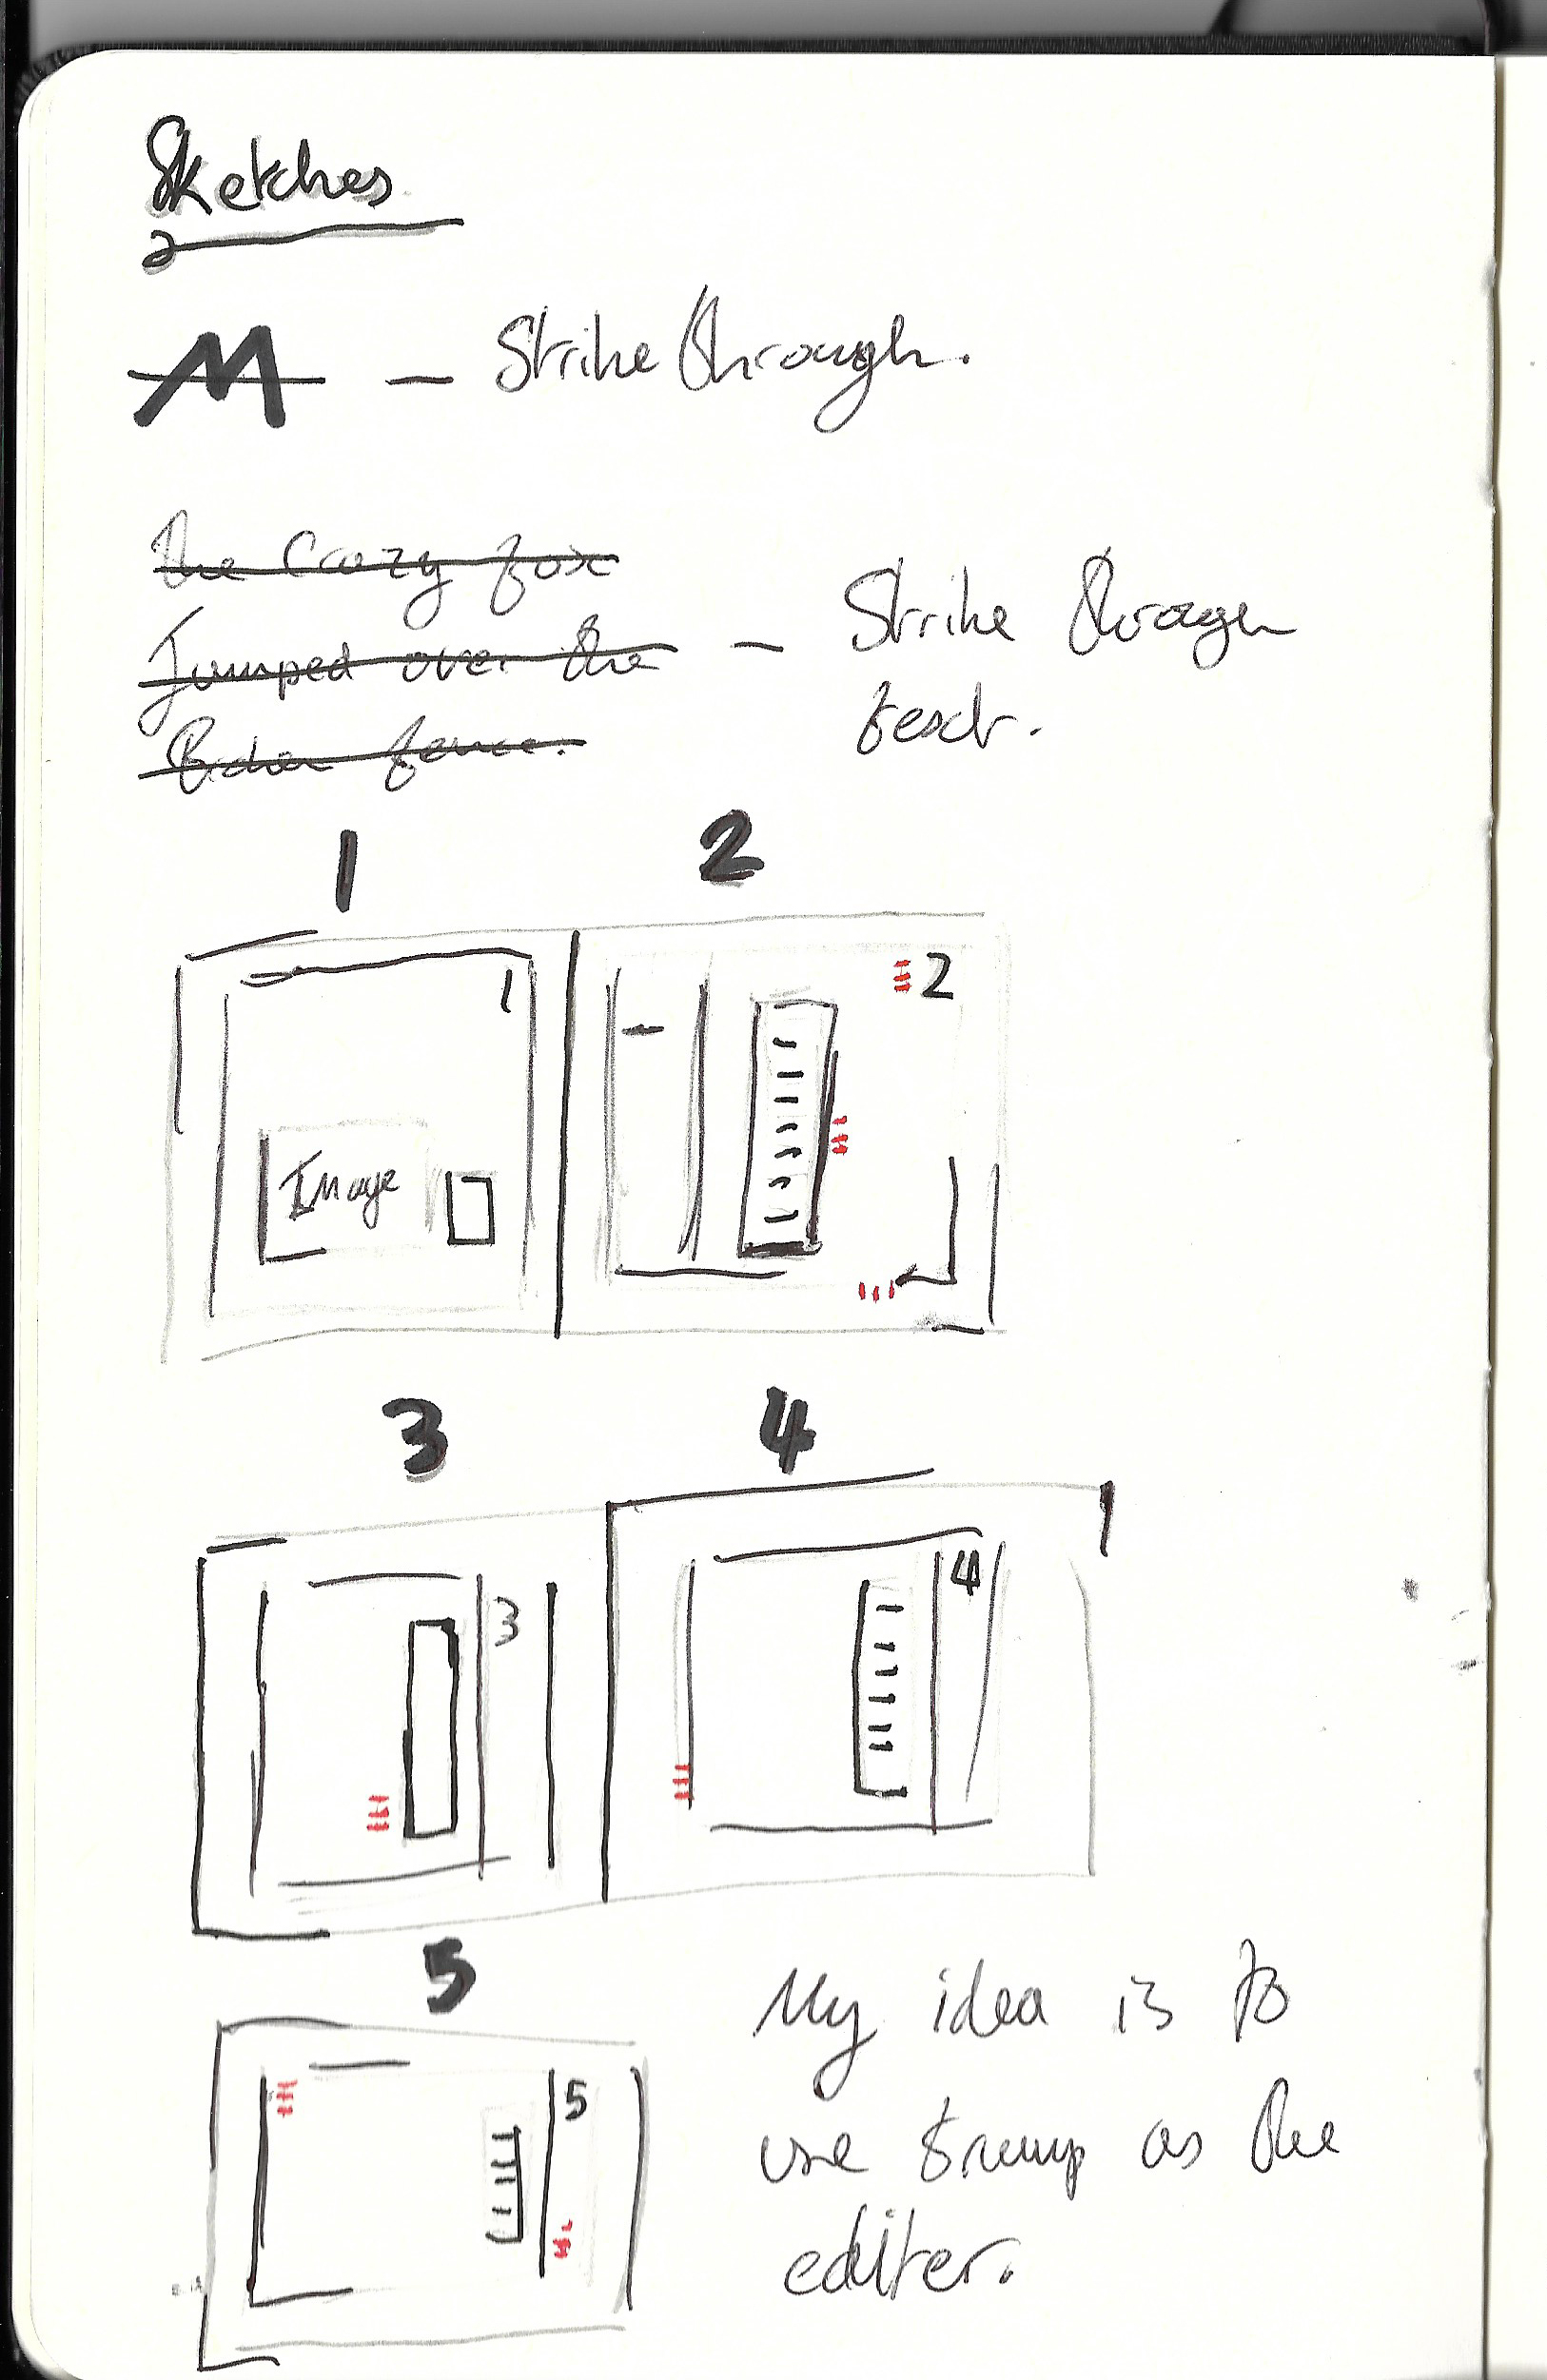 Sketches
M - Strike through.
The Crazy fox
Jumped over the - Strike through
fence. text.
1 2
1 2
Image
3 4
3 4
5
5
My idea is to
use trump as the
editer.